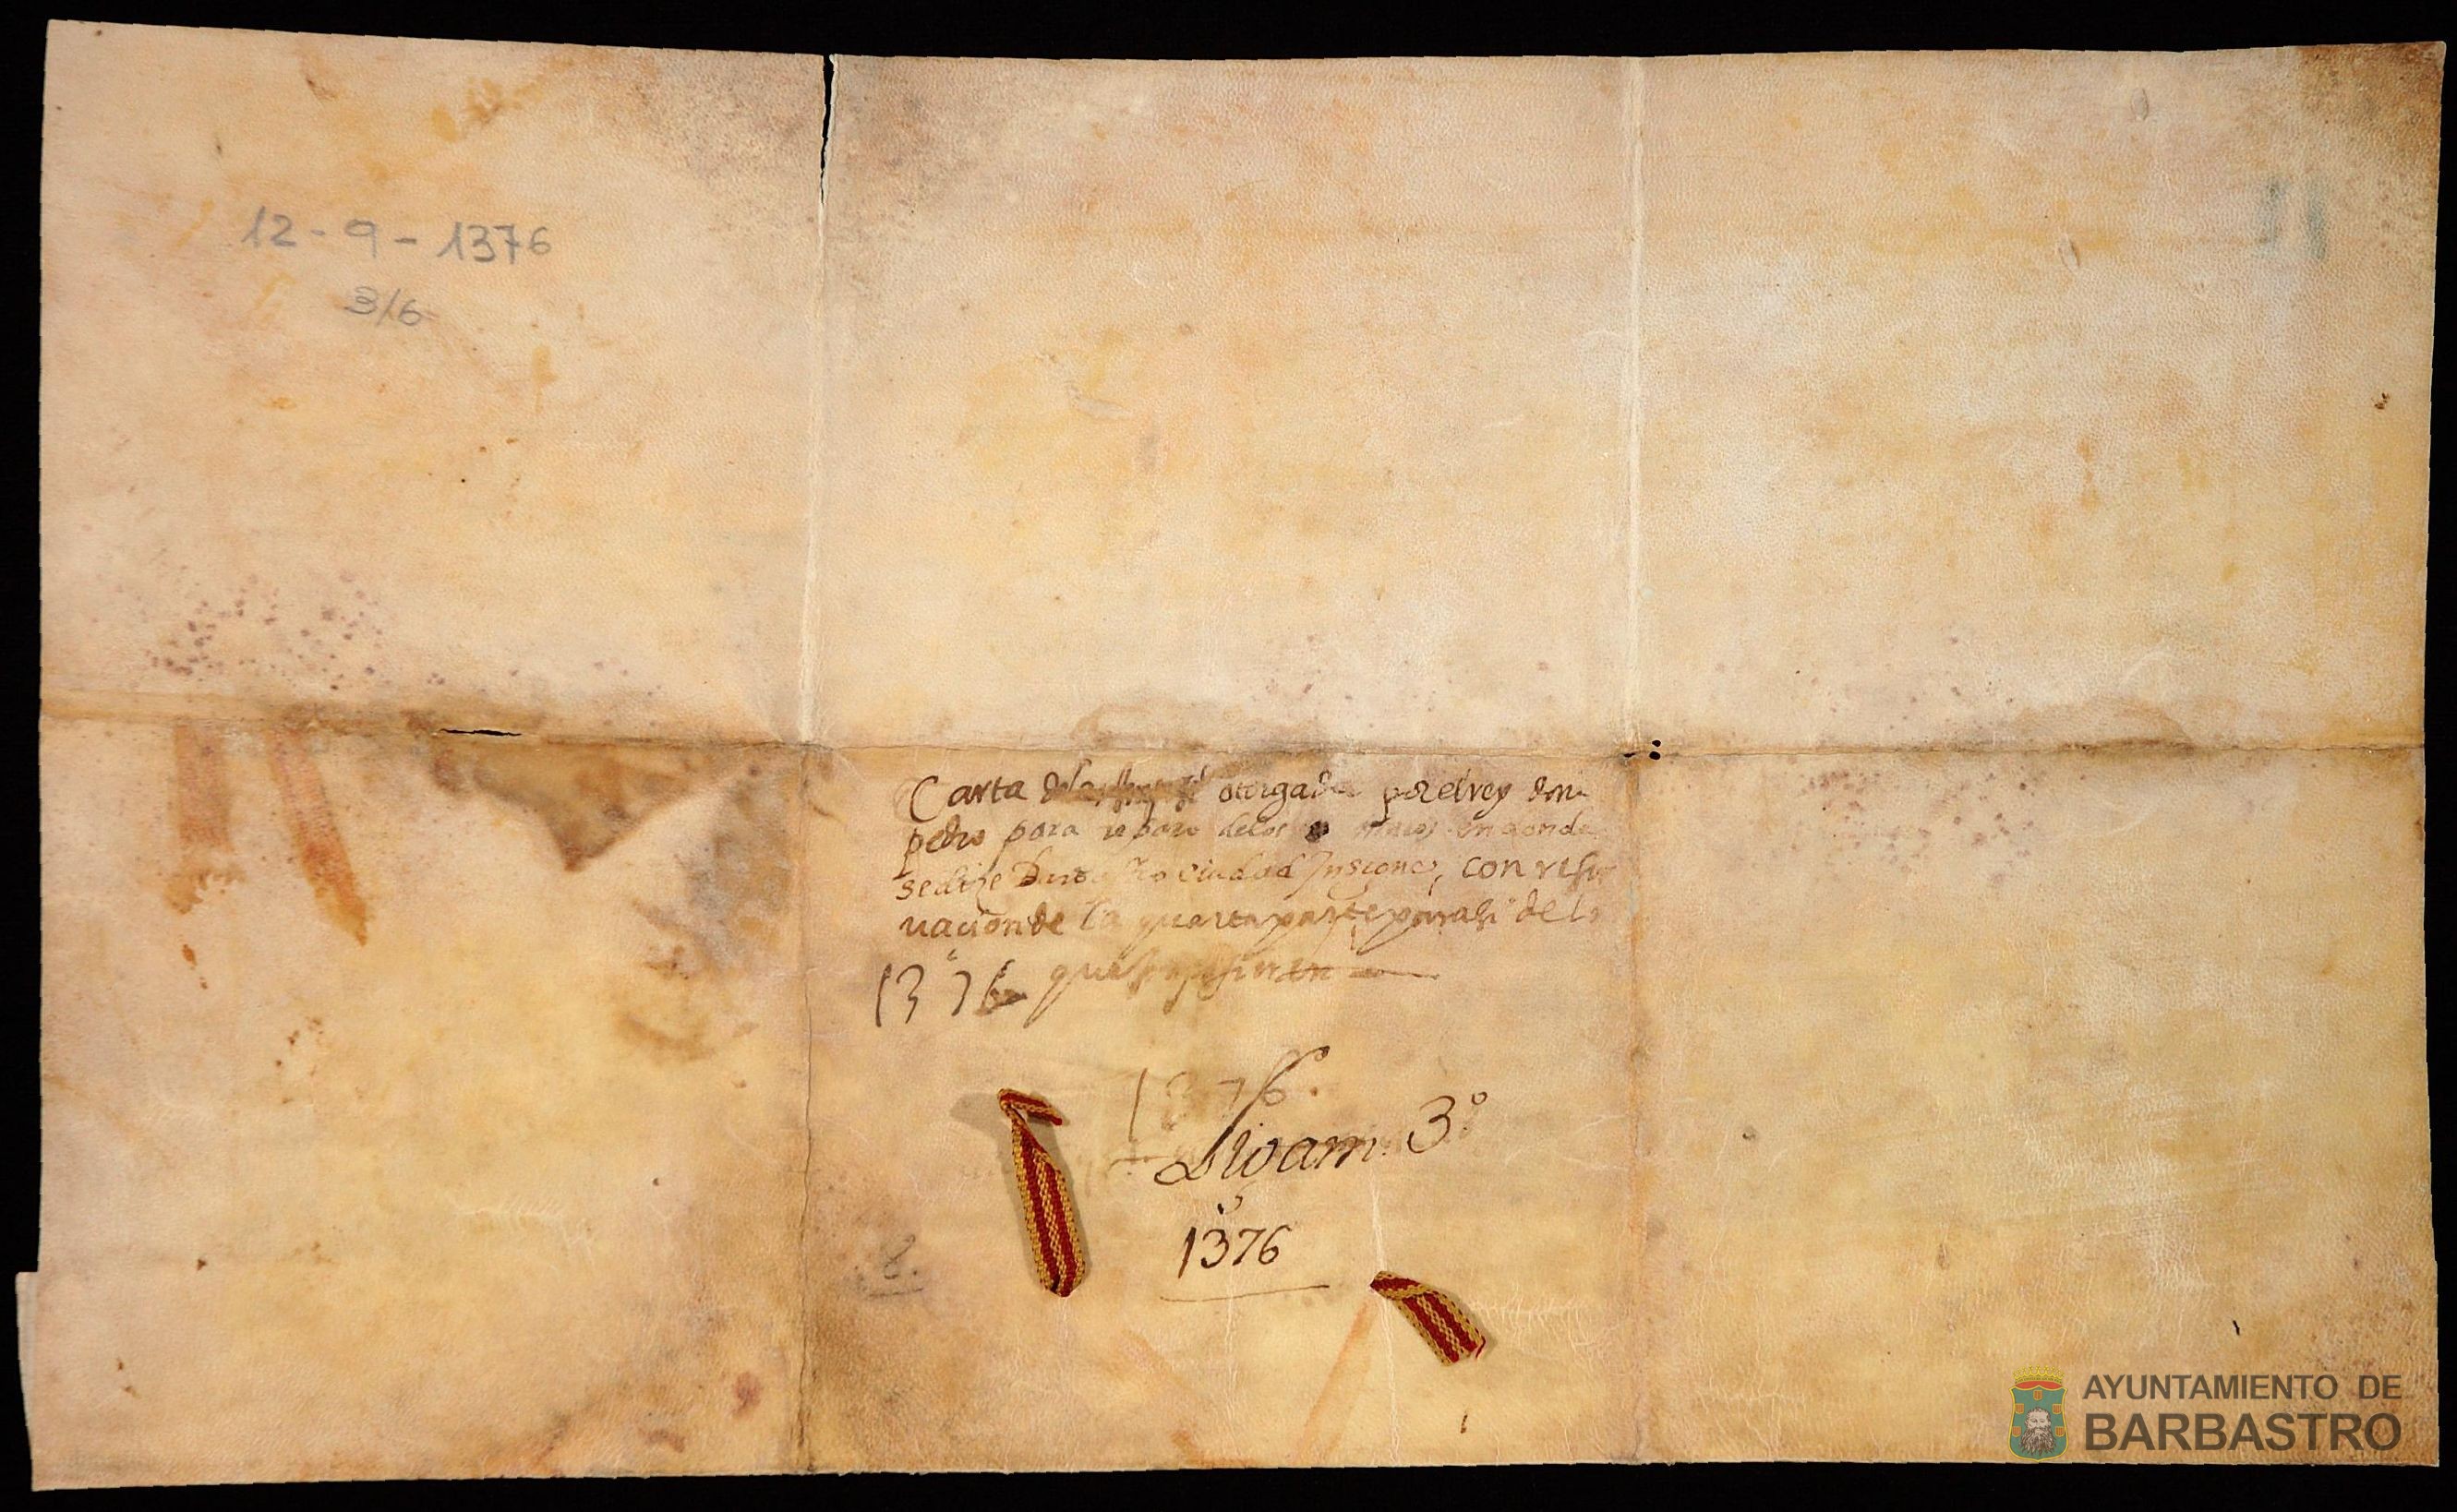 12-9-1376
3/6
11
Carta otorgada por el rey don
pedro para reparo delos muros en donde
se dize ciudad con reser
uacion de la quarta parte para si de lo
1376 que
1376.
Ligam. 3º
1376
AYUNTAMIENTO DE
BARBASTRO